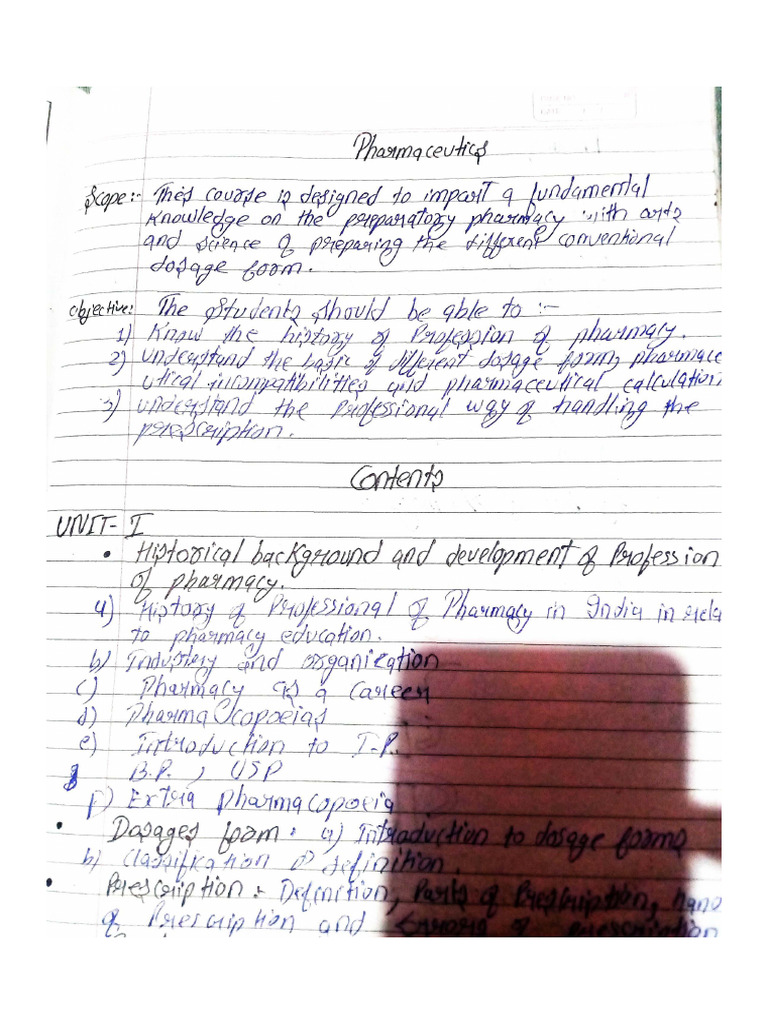 Pharmaceutics
Scope:- This course is designed to impart a fundamental
knowledge on the preparatory pharmacy with arts
and science of preparing the different conventional
dosage form.
Objective: The Students should be able to :-
1) Know the history of Profession of pharmacy.
2) understand the basic of different dosage forms, pharmace
utical incompatibilities and pharmaceutical calculation
3) understand the Professional way of handling the
prescription.
Contents
UNIT- I
• Historical background and development of Profession
of pharmacy.
a) History of Professional of Pharmacy in India in rela
to pharmacy education.
b) Industry and organization
c) Pharmacy as a career
d) Pharmacopoeias
e) Introduction to I.P.
B.P., USP
f) Extra pharmacopoeia
• Dosages form: a) Introduction to dosage forms
b) Classification & definition
• Prescription: Definition, Parts of Prescription, hand
of Prescription and Errors of prescription